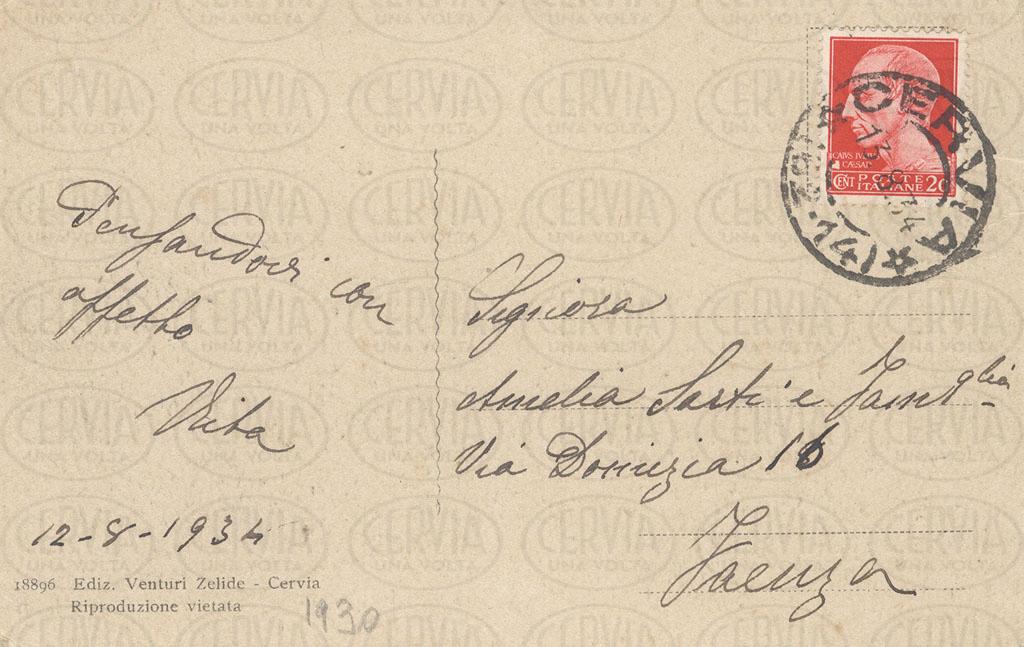 Pensandovi con
affetto
Vita
12-8-1934
18896 Ediz. Venturi Zelide - Cervia
Riproduzione vietata
1930
CAIVS IVLIVS
CAESAR
CENT POSTE
ITALIANE 20
CERVIA
13.8.34
Signora
Amelia Sarti e Famiglia
Via Dorizia 16
Faenza
CERVIA
UNA VOLTA